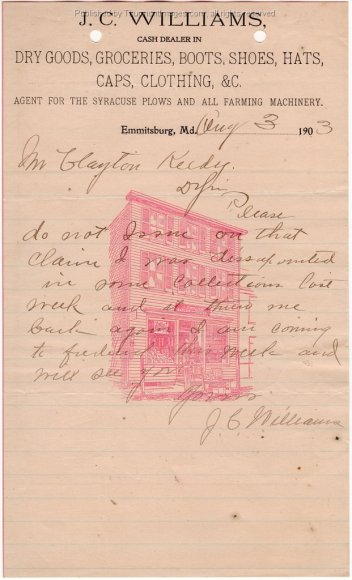 Published by TrueVintageImages.com
J. C. WILLIAMS,
CASH DEALER IN
DRY GOODS, GROCERIES, BOOTS, SHOES, HATS,
CAPS, CLOTHING, &C.
AGENT FOR THE SYRACUSE PLOWS AND ALL FARMING MACHINERY.
Emmitsburg, Md. Aug 3 1903
Mr Clayton Keedy.
Please
do not Issue on that
claim I was dissapointed
in some collections last
week and it threw me
back again I am coming
to this week and
will see you
Yours
J C Williams